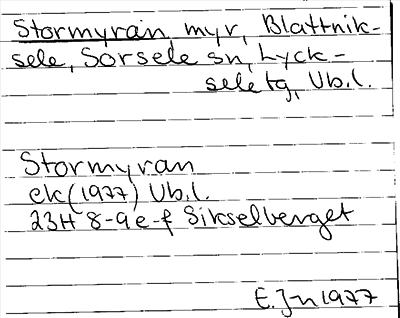 Stormyran, myr, Blattnik-
sele, Sorsele sn, Lyck-
sele tg, Vb.l.
Stormyran
ek (1977) Vb.l.
23H 8-9 e-f Sikselberget
E. Jn 1977